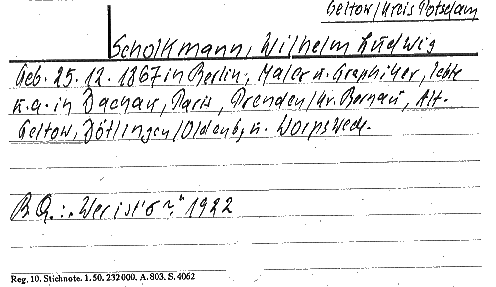 Geltow/Kreis Potsdam
Scholkmann, Wilhelm Ludwig
Geb. 25.12.1867 in Berlin, Maler u. Graphiker, lebte
u.a. in Dachau, Paris, Prenden/Kr. Bernau, Alt-
Geltow, Dötlingen/Oldenbg u. Worpswede.
B.Qu.: "Wer ist's?" 1922
Reg. 10. Stichnote. 1.50. 232000. A. 803. S. 4062